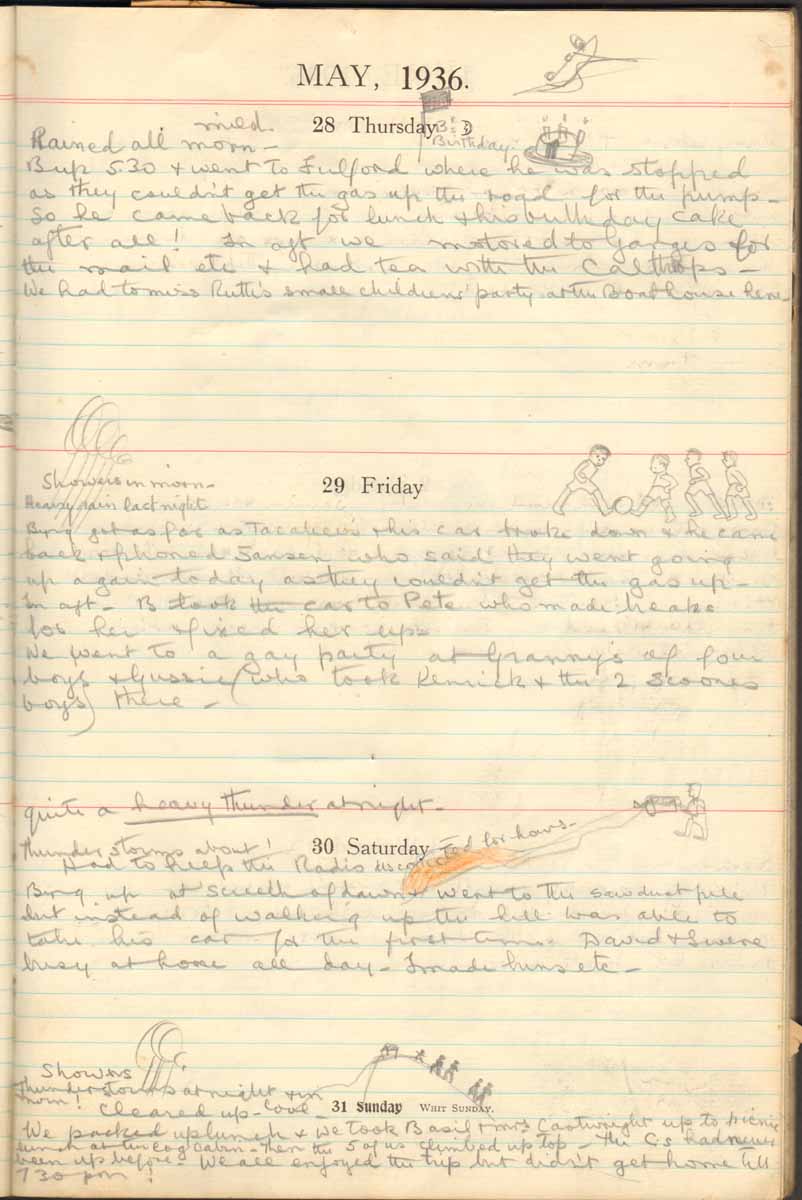 MAY, 1936.
mild
28 Thursday
B's
Birthday
Rained all morn -
B up 5.30 & went to Fulford where he was stopped
as they couldn't get the gas up the road for the pump -
So he came back for lunch & his birthday cake
after all! In aft we motored to Ganges for
the mail etc & had tea with the Calthrops -
We had to miss Ruth's small childrens' party at the Boathouse here
Showers in morn -
29 Friday
Heavy rain last night
got as far as & his car broke down & he came
back & phoned Jansen who said they went going
up again today as they couldn't get the gas up -
In aft - B took the car to Pete who made
for her & fixed her up -
We went to a gay party at Granny's of four
boys & Gussie (who took Kenrick & the 2 Scoones
boys) there -
quite a heavy thunder at night -
Thunder storms about!
30 Saturday
Had to keep the Radio disconnected for hours -
up at screech of dawn & went to the sawdust pile
but instead of walking up the hill was able to
take his car for the first time. David &
busy at home all day - I made buns etc -
Showers
Thunderstorms at night & in
morn! Cleared up - cool -
31 Sunday WHIT SUNDAY.
We packed up lunch & we took Basil & Mrs Cartwright up to picnic
lunch at the Log Cabin - Then the 5 of us climbed up top - The C's had never
been up before - We all enjoyed the trip but didn't get home till
7 30 pm!